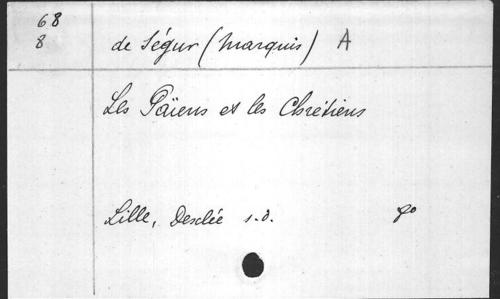 68
8
de Ségur (Marquis) A
Les Païens et les Chrétiens
Lille, Desclée s.d. 8o